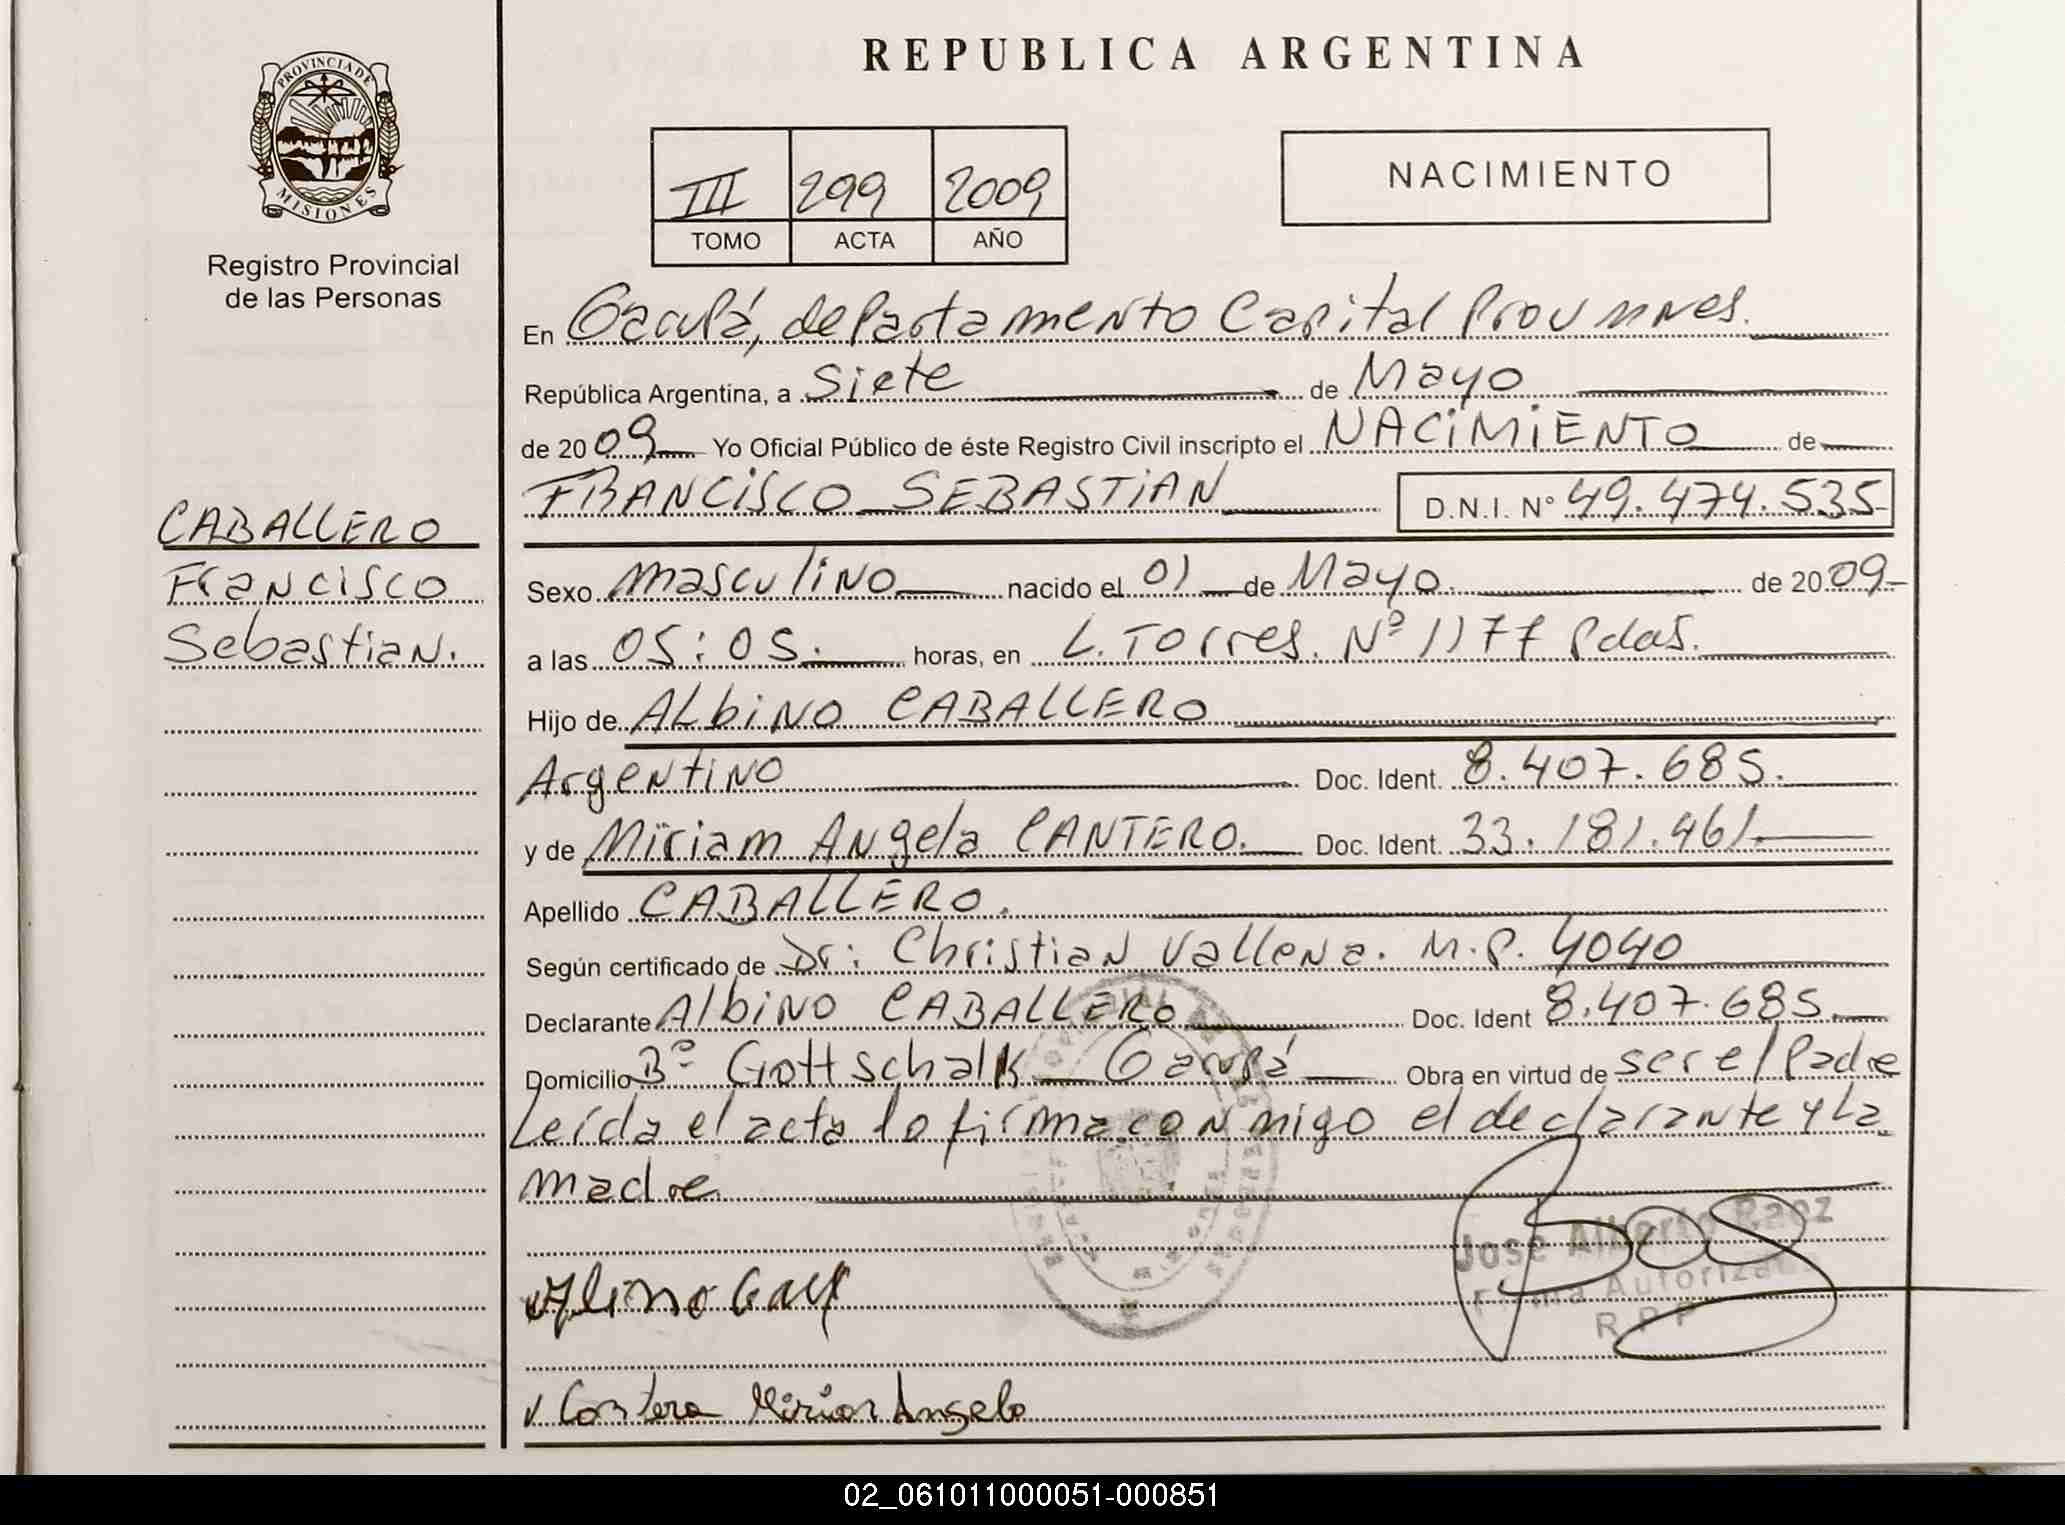 REPUBLICA ARGENTINA
PROVINCIA DE
MISIONES
Registro Provincial
de las Personas
III 299 2009
TOMO ACTA AÑO
NACIMIENTO
En Garupá, departamento Capital Prov mnes.
República Argentina, a siete de Mayo
de 2009 Yo Oficial Público de éste Registro Civil inscripto el NACIMIENTO de
FRANCISCO SEBASTIAN D.N.I. Nº 49.474.535
CABALLERO
Francisco
Sebastian.
Sexo masculino nacido el 01 de Mayo. de 2009
a las 05:05. horas, en L. Torres. Nº 1177 Pdas.
Hijo de Albino CABALLERO
Argentino Doc. Ident. 8.407.685.
y de Miriam Angela CANTERO. Doc. Ident. 33.181.461.
Apellido CABALLERO.
Según certificado de Dr: Christian Vallena. M.P. 4040
Declarante Albino CABALLERO Doc. Ident 8.407.685.
Domicilio Bº Gottschalk Garupá Obra en virtud de ser el Padre
Leída el acta lo firma conmigo el declarante y La
madre
Jose Alberto Paez
Firma Autorizada
R P P
Cantero Miriam Angela
02_061011000051-000851